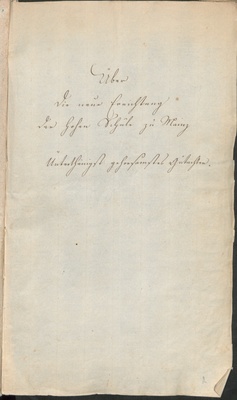 Über
die neue Errichtung
der hohen Schule zu Mainz
Unterthänigst gehorsamstes